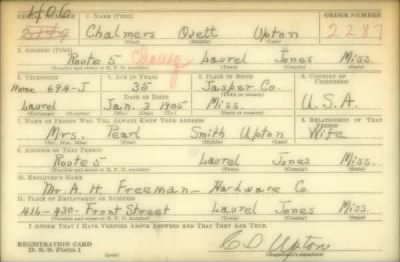 SERIAL NUMBER 1. NAME (Print) ORDER NUMBER
Chalmers Ovett Upton 2287
(First) (Middle) (Last)
2. ADDRESS (Print)
Route 5 Laurel Jones Miss.
(Number and street or R. F. D. number) (Town) (County) (State)
3. TELEPHONE 4. AGE IN YEARS 5. PLACE OF BIRTH 6. COUNTRY OF CITIZENSHIP
Home 694-J 35 Jasper Co.
DATE OF BIRTH (Town or county)
Laurel Jan. 3 1905 Miss. U.S.A.
(Exchange) (Number) (Mo.) (Day) (Yr.) (State or country)
7. NAME OF PERSON WHO WILL ALWAYS KNOW YOUR ADDRESS 8. RELATIONSHIP OF THAT PERSON
Mrs. Pearl Smith Upton Wife
(Mr., Mrs., Miss) (First) (Middle) (Last)
9. ADDRESS OF THAT PERSON
Route 5 Laurel Jones Miss.
(Number and street or R. F. D. number) (Town) (County) (State)
10. EMPLOYER'S NAME
Mr. A. H. Freeman - Hardware Co.
11. PLACE OF EMPLOYMENT OR BUSINESS
416-430- Front Street Laurel Jones Miss.
(Number and street or R. F. D. number) (Town) (County) (State)
I AFFIRM THAT I HAVE VERIFIED ABOVE ANSWERS AND THAT THEY ARE TRUE.
REGISTRATION CARD
D. S. S. Form 1 C O Upton
(over) (Registrant's signature)